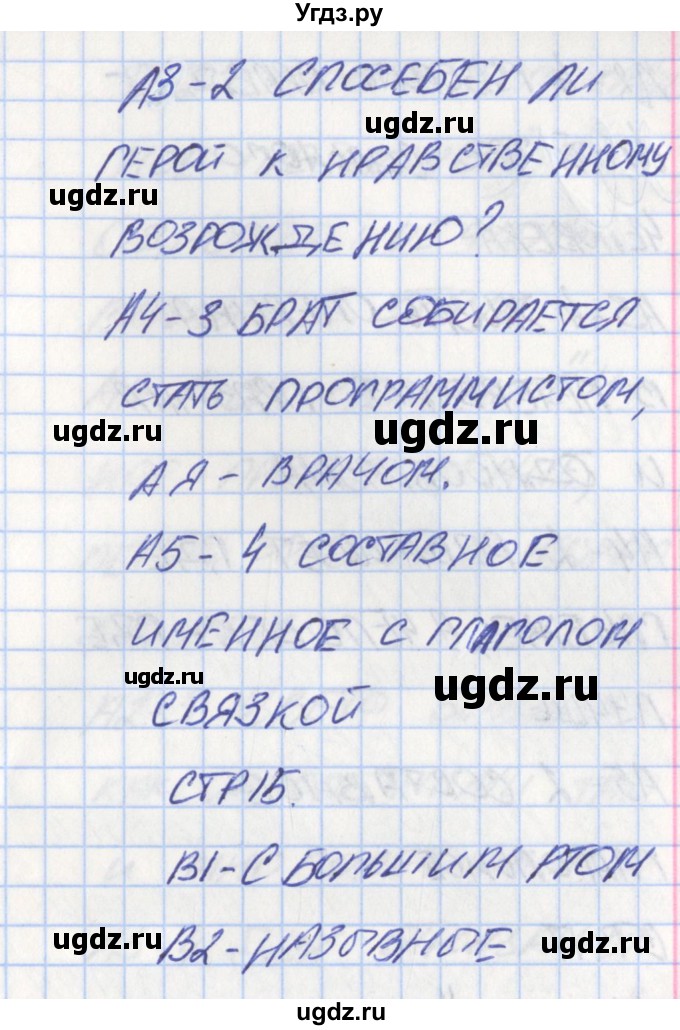 Угдз.ру
А3-2 СПОСЕБЕН ЛИ
ugdz.ru
ГЕРОЙ К НРАВСТВЕННОМУ
ugdz.ru
ВОЗРОЖДЕНИЮ?
ugdz.ru
А4-3 БРАТ СОБИРАЕТСЯ
СТАТЬ ПРОГРАММИСТОМ,
ugdz.ru ugdz.ru
А Я - ВРАЧОМ.
А5-4 СОСТАВНОЕ
ugdz.ru
ИМЕННОЕ С ГЛАГОЛОМ
ugdz.ru ugdz.ru
СВЯЗКОЙ
СТР15.
ugdz.ru
В1-С БОЛЬШИМ РТОМ
В2-НАЗЫВНЫЕ
ugdz.ru ugdz.ru
ugdz.ru